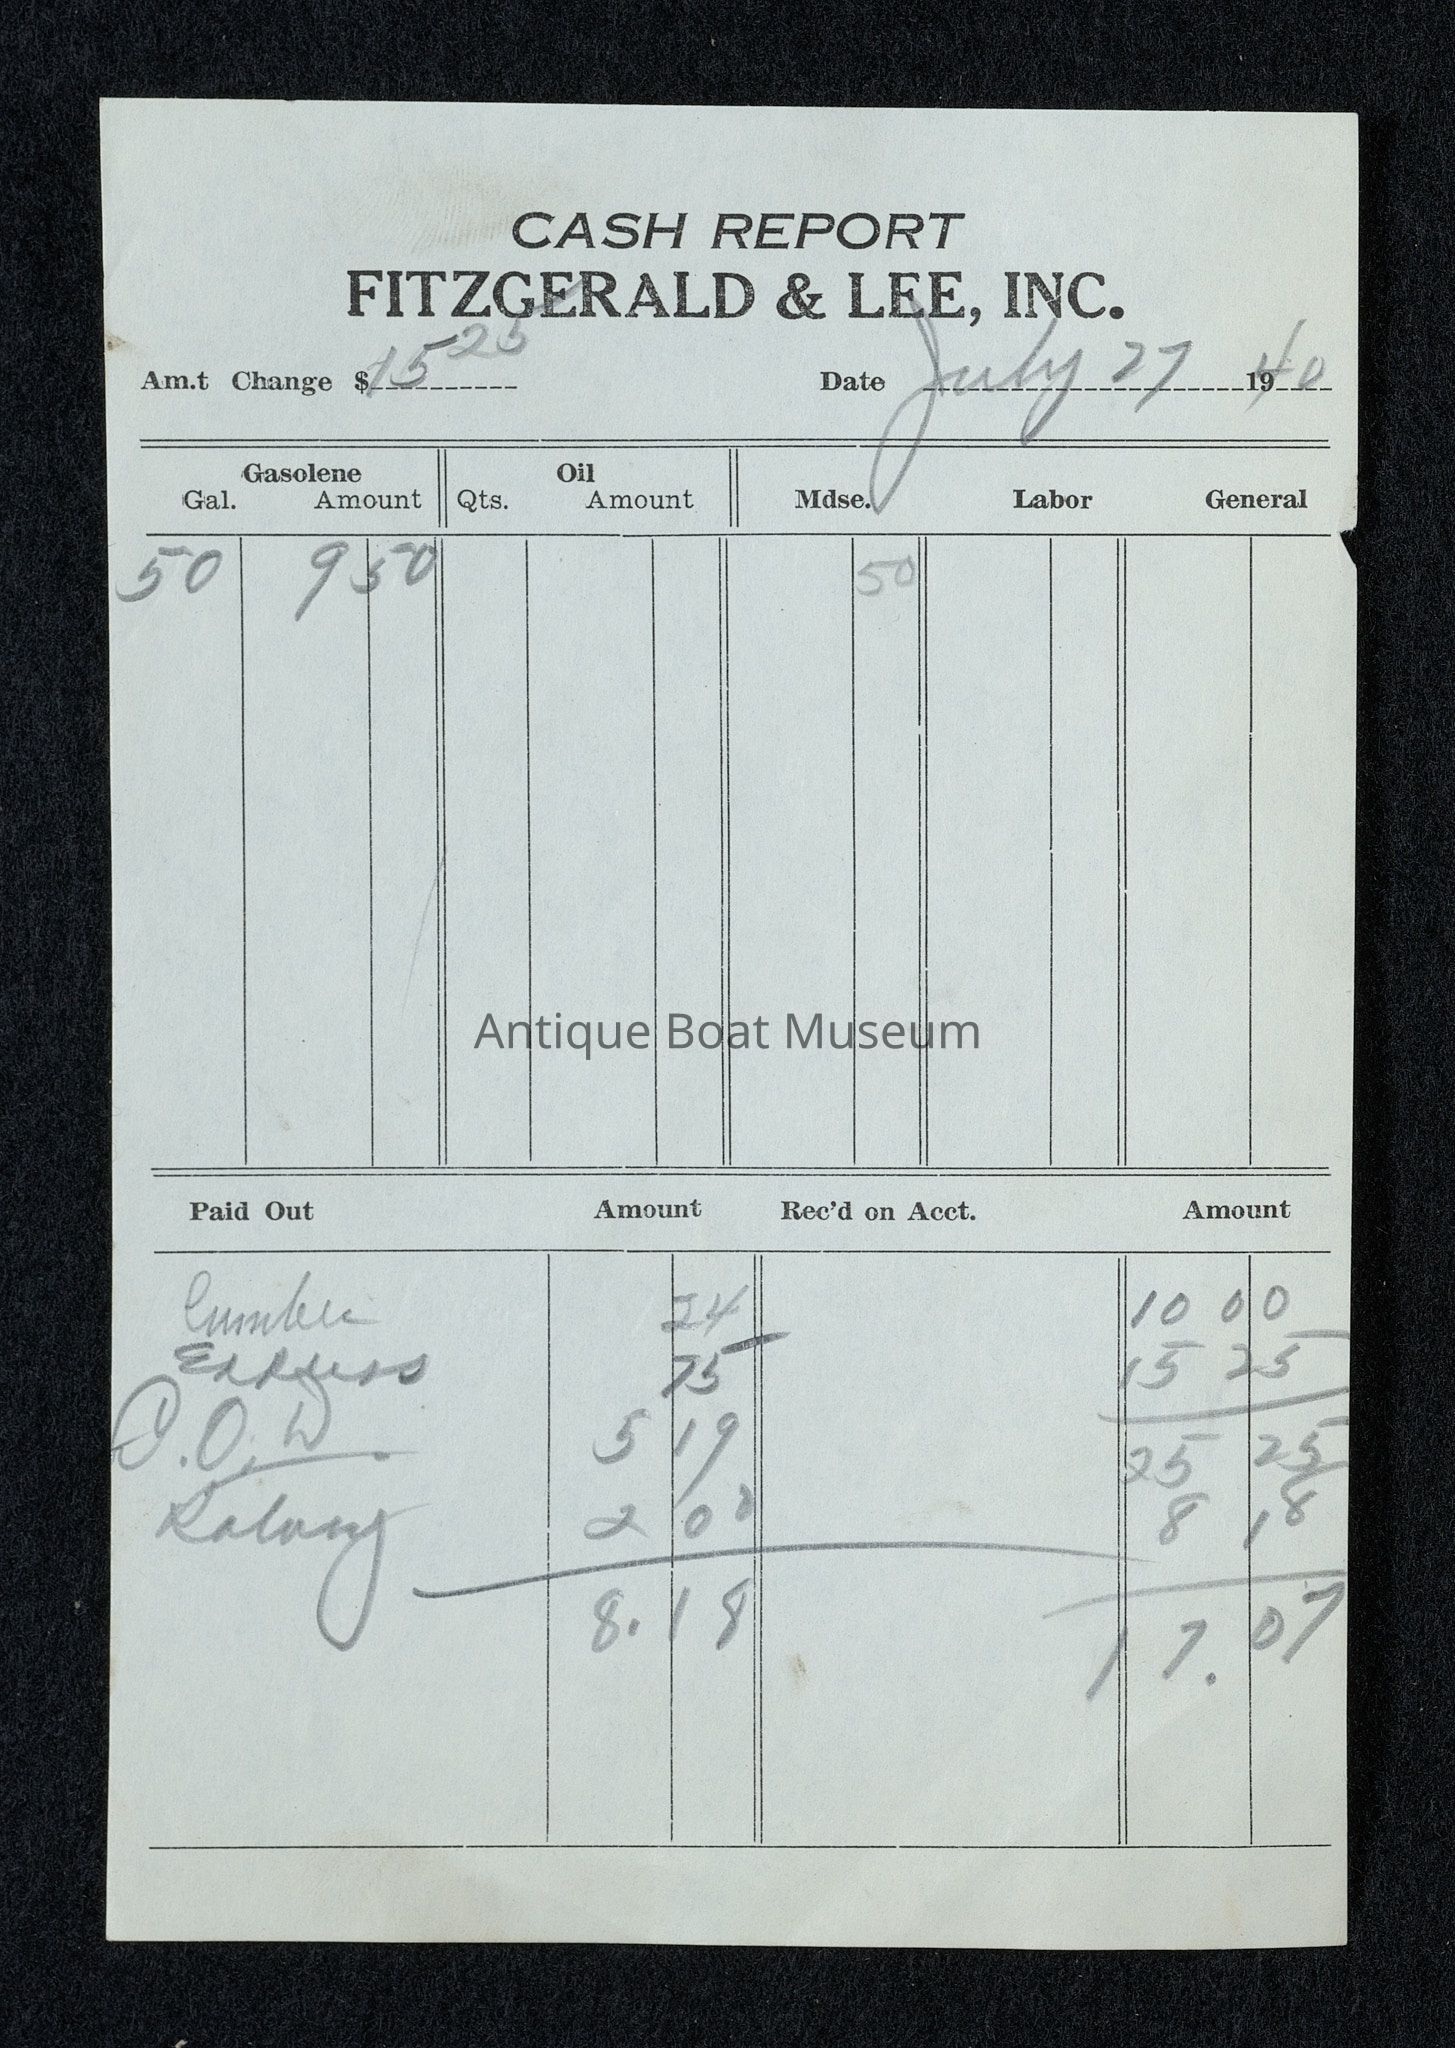 CASH REPORT
FITZGERALD & LEE, INC.
Am.t Change $ 15 25 Date July 27 1940
Gasolene Oil
Gal. Amount Qts. Amount Mdse. Labor General
50 9 50 50
Antique Boat Museum
Paid Out Amount Rec'd on Acct. Amount
Lumber 24 10 00
Express 75 15 25
5 19 25 25
2 00 8 18
8.18 17.07